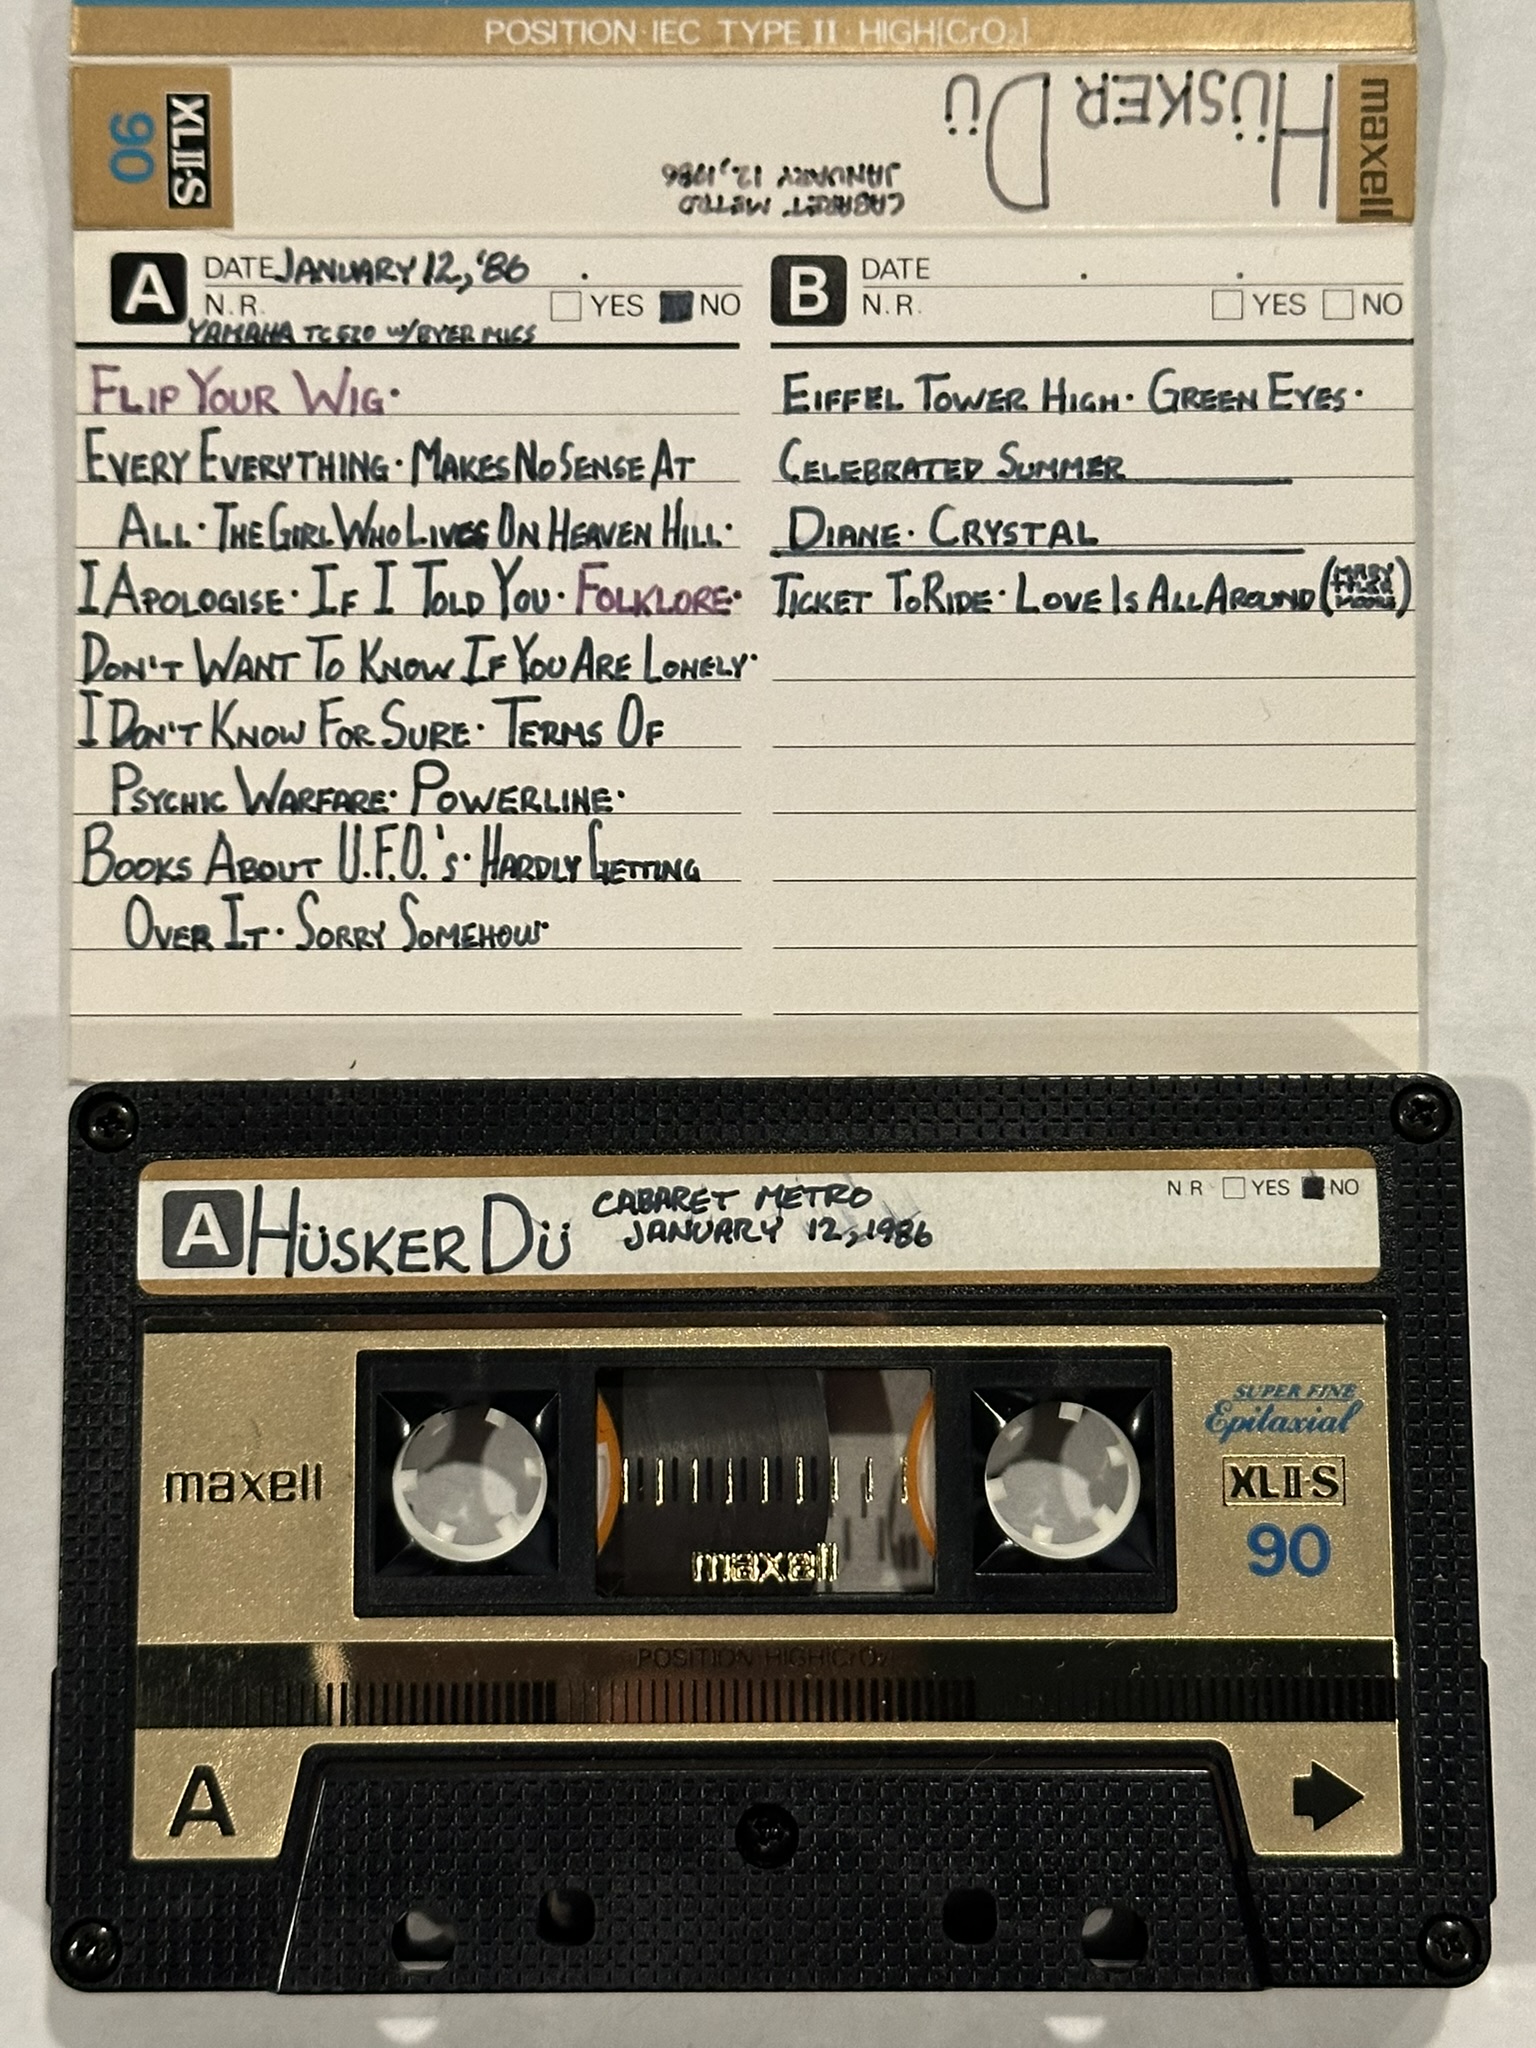 POSITION·IEC TYPE II·HIGH[CrO₂]
maxell
HÜSKER DÜ
CABARET METRO
JANUARY 12, 1986
XLII-S
90
A DATE JANUARY 12, '86
N.R. YES NO
YAMAHA TC 520 W/BYER MICS
FLIP YOUR WIG·
EVERY EVERYTHING· MAKES NO SENSE AT
ALL· THE GIRL WHO LIVES ON HEAVEN HILL·
I APOLOGISE· IF I TOLD YOU· FOLKLORE·
DON'T WANT TO KNOW IF YOU ARE LONELY·
I DON'T KNOW FOR SURE· TERMS OF
PSYCHIC WARFARE· POWERLINE·
BOOKS ABOUT U.F.O.'S· HARDLY GETTING
OVER IT· SORRY SOMEHOW·
B DATE
N.R. YES NO
EIFFEL TOWER HIGH· GREEN EYES·
CELEBRATED SUMMER
DIANE· CRYSTAL
TICKET TO RIDE· LOVE IS ALL AROUND (MARY TYLER MOORE)
A HÜSKER DÜ
CABARET METRO
JANUARY 12, 1986
NR YES NO
maxell
maxell
SUPER FINE
Epitaxial
XLII-S
90
POSITION HIGH(CrO₂)
A